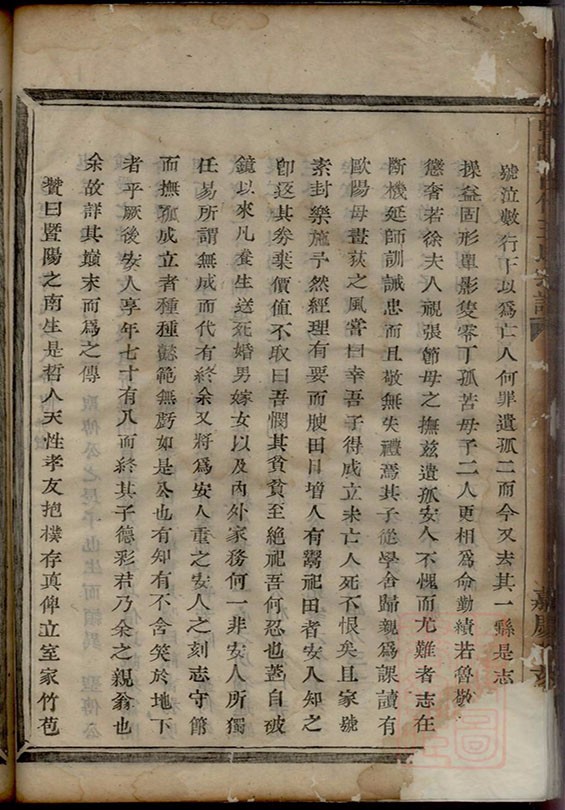 號泣數行下以為亡人何罪遺孤二而今又去其一繇是志
操益固形單影隻零丁孤苦母子二人更相為命勤績若魯敬
懲奢若徐夫人視張節母之撫茲遺孤安人不愧而尤難者志在
斷機延師訓誡忠而且敬無失禮焉其子從學舍歸親為課讀有
歐陽母畫荻之風嘗曰幸吾子得成立未亡人死不恨矣且家號
素封樂施予然經理有要而腴田日增人有鬻祀田者安人知之
卽返其劵棄價值不取曰吾憫其貧貧至絕祀吾何忍也蓋自破
鏡以來凡養生送死婚男嫁女以及內外家務何一非安人所獨
任易所謂無成而代有終余又將為安人重之安人之刻志守節
而撫孤成立者種種懿範無虧如是公也有知有不含笑於地下
者乎厥後安人享年七十有八而終其子德彩君乃余之親翁也
余故詳其巔末而為之傳
贊曰暨陽之南生是哲人天性孝友抱樸存真俾立室家竹苞
嘉慶